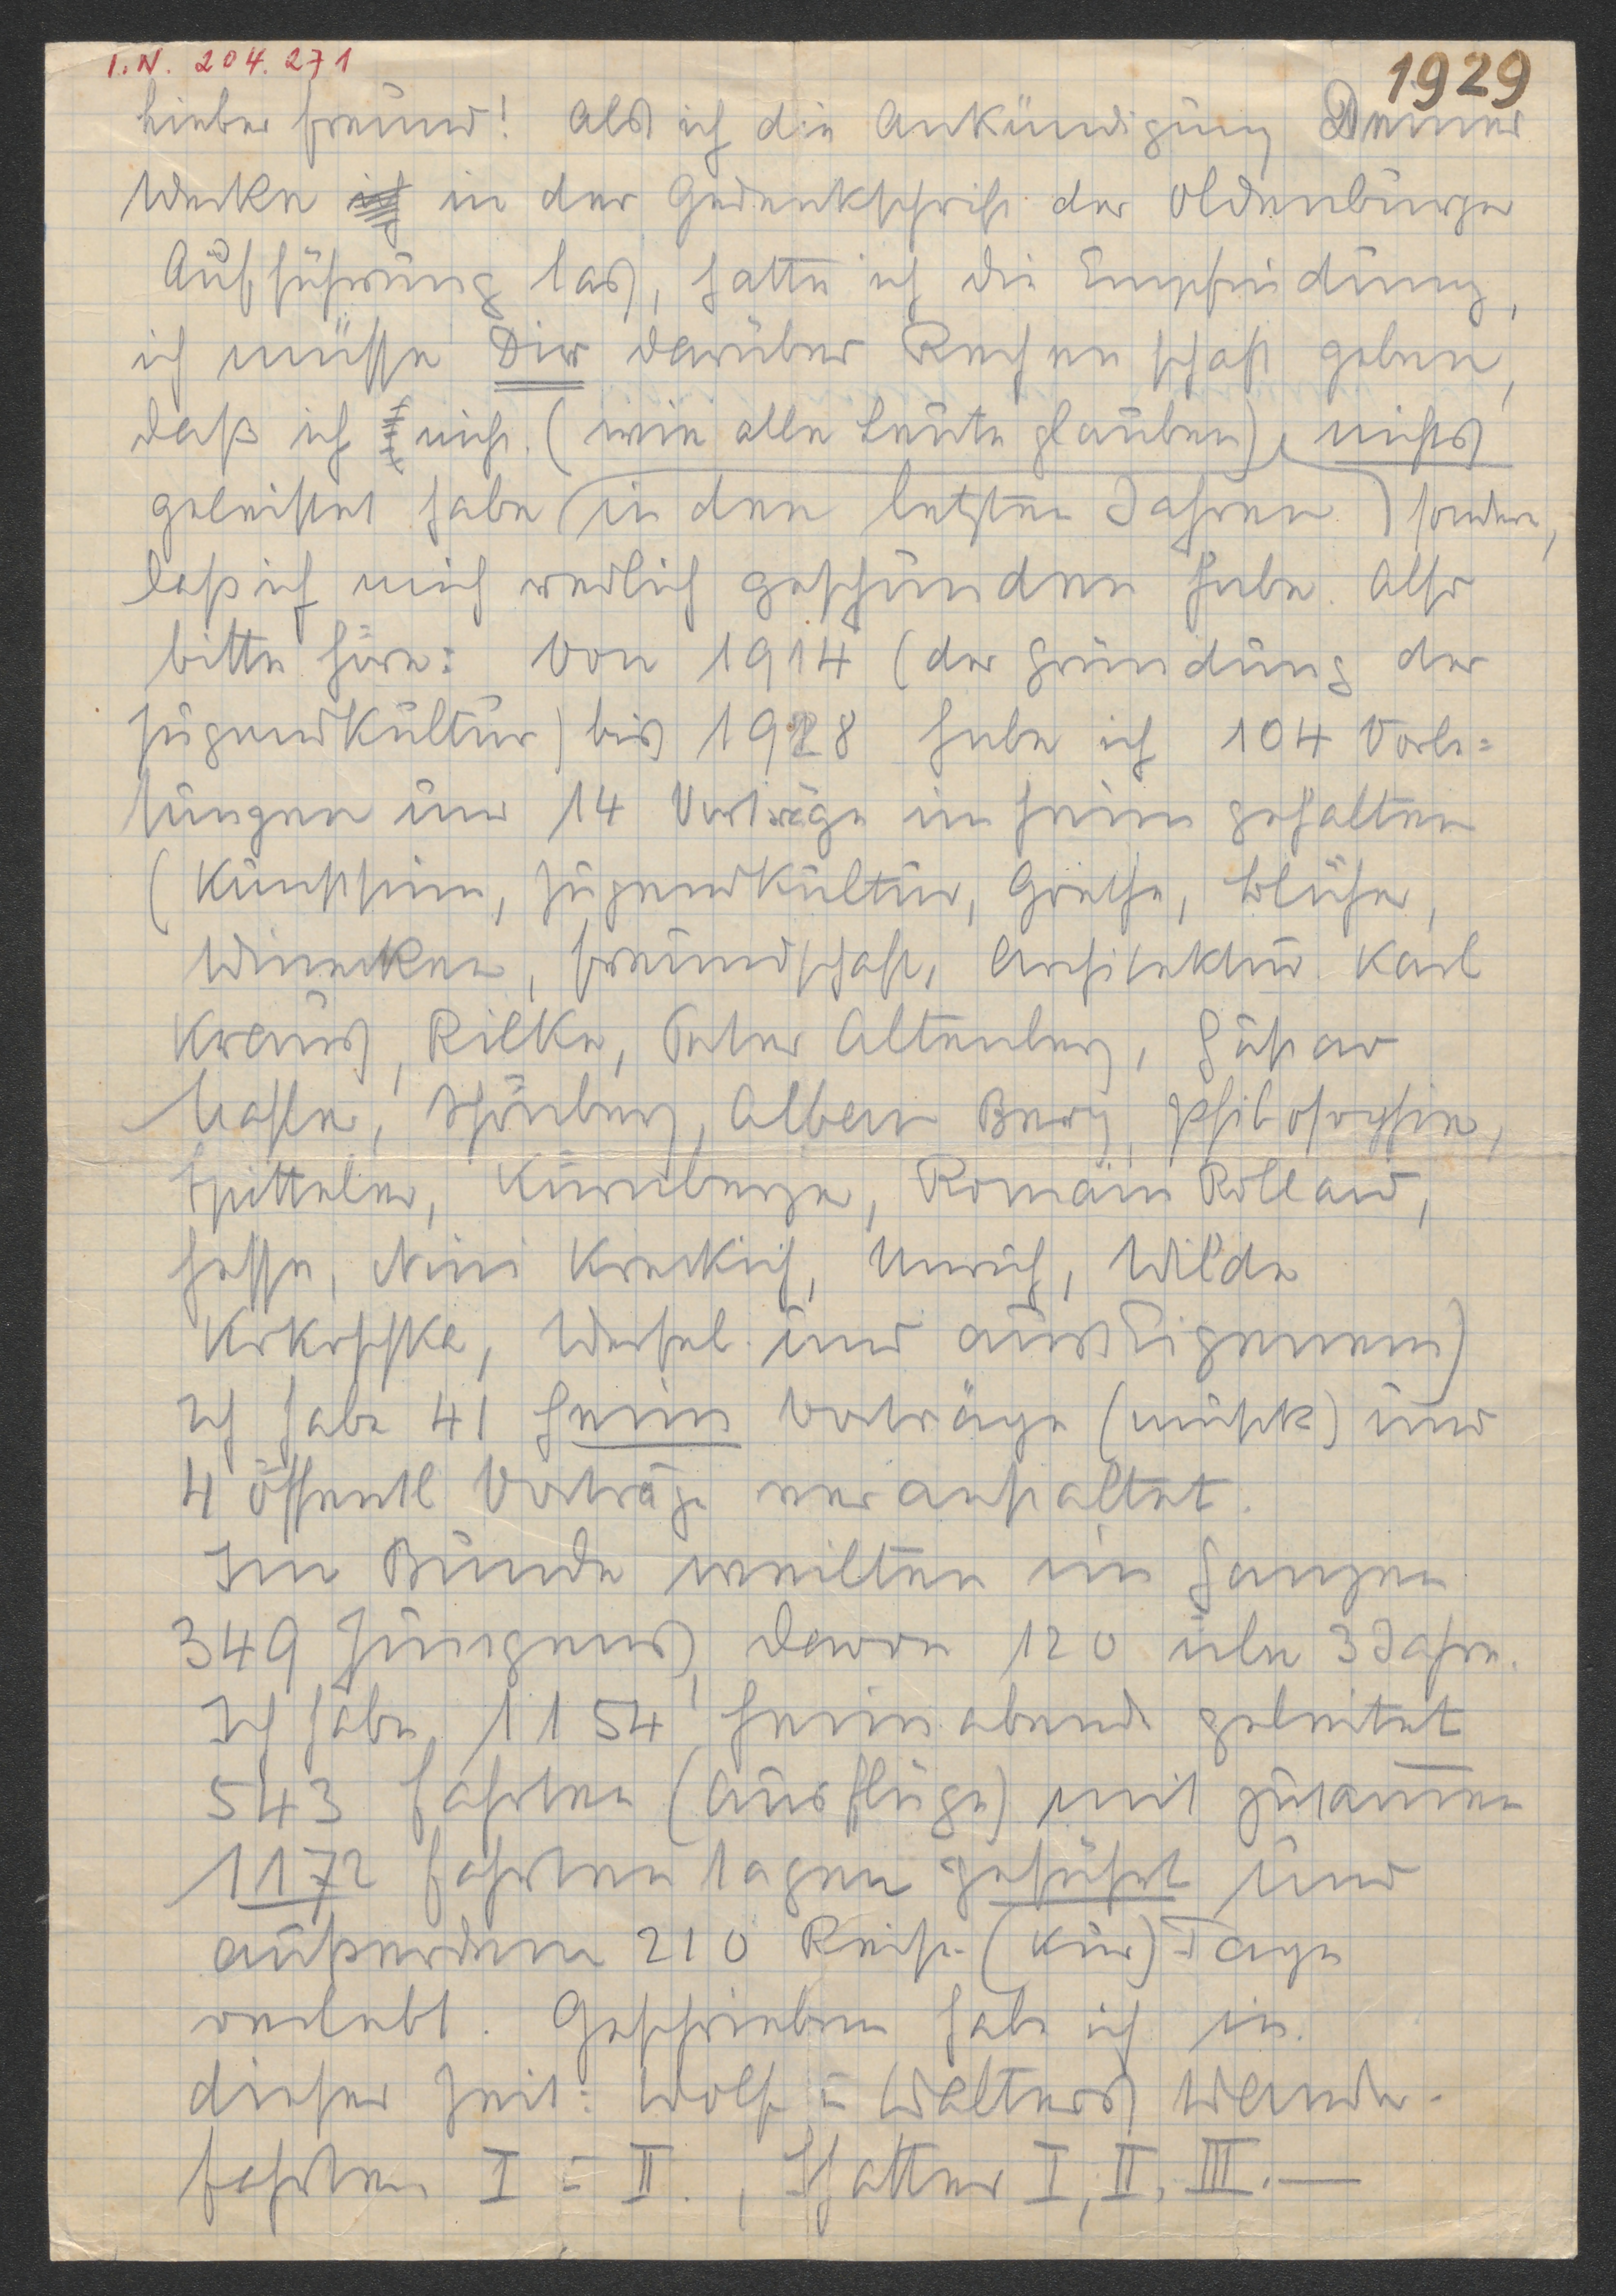 I.N. 204.271
1929
Lieber Freund! Als ich die Ankündigung Deiner
Werke in der Gedenkschrift der Oldenburger
Aufführung las, hatte ich die Empfindung,
ich müsse Dir darüber Rechenschaft geben,
daß ich nicht (wie alle Leute glauben), nichts
geleistet habe (in den letzten Jahren) sondern,
daß ich mich redlich geschunden habe. Also
bitte höre: Von 1914 (der Gründung der
Jugendkultur) bis 1928 habe ich 104 Vorle=
sungen und 14 Vorträge im Heim gehalten
(Kunstsinn, Jugendkultur, Goethe, Blüher,
Wyneken, Freundschaft, Architektur Karl
Kraus, Rilke, Peter Altenberg, Gustav
Mahler, Schönberg, Alban Berg, Philosophie,
Spitteler, Kürnberger, Romain Rolland,
Hesse, Unruh, Wilde
Kokoschka, Werfel und aus Eigenem)
Ich habe 41 Heim Vorträge (Musik) und
4 öffentl Vorträge veranstaltet.
Im Bunde weilten im Ganzen
349 Jungens, davon 120 über 3 Jahre.
Ich habe 1154 Heimabende geleitet
543 Fahrten (Ausflüge) mit zusammen
1172 Fahrtentagen geführt und
außerdem 210 Reise (Kur)=Tage
verlebt. Geschrieben habe ich in
dieser Zeit: Wolf u Walters Wander-
fahrten I u II., Schatter I, II, III. —